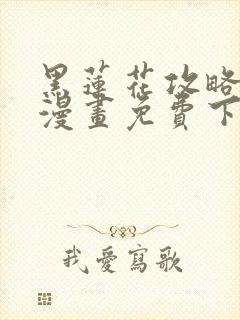 黑蓮花攻略
漫畫免費下
我愛寫歌